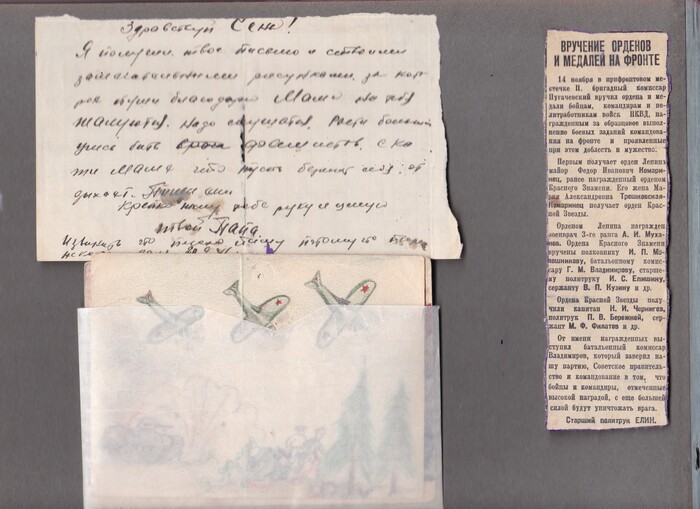 Здравствуй Сенж!
Я получил твое письмо и с твоими
замечательными рисунками за кото-
рое очень благодарю. Мама на тебя
жалуется. Надо слушаться. Расти большой
учись бить фашистов, ска
жи маме что пусть бережет себя, от
дыхает. Пиши
Крепко жму тебе руку и целую
твой Папа
Извините что плохо пишу потому что
ВРУЧЕНИЕ ОРДЕНОВ
И МЕДАЛЕЙ НА ФРОНТЕ
14 ноября в прифронтовом ме-
стечке П. бригадный комиссар
Пугачевский вручил ордена и ме-
дали бойцам, командирам и по-
литработникам войск НКВД, на-
гражденным за образцовое выпол-
нение боевых заданий командова-
ния на фронте и проявленные
при этом доблесть и мужество.
Первым получает орден Ленина
майор Федор Иванович Комари-
нец, ранее награжденный орденом
Красного Знамени. Его жена Ма-
рия Александровна Трошковская-
Комаринец получает орден Крас-
ной Звезды.
Орденом Ленина награжден
военврач 3-го ранга А. И. Муха-
нов. Ордена Красного Знамени
вручены полковнику И. П. Мо-
лошникову, батальонному комис-
сару Г. М. Владимирову, старше-
му политруку И. С. Елишину,
сержанту В. П. Кузину и др.
Ордена Красной Звезды полу-
чили капитан И. И. Чернигов,
политрук П. В. Бережной, сер-
жант М. Ф. Филатов и др.
От имени награжденных вы-
ступил батальонный комиссар
Владимиров, который заверил на-
шу партию, Советское правитель-
ство и командование в том, что
бойцы и командиры, отмеченные
высокой наградой, с еще большей
силой будут уничтожать врага.
Старший политрук ЕЛИН.